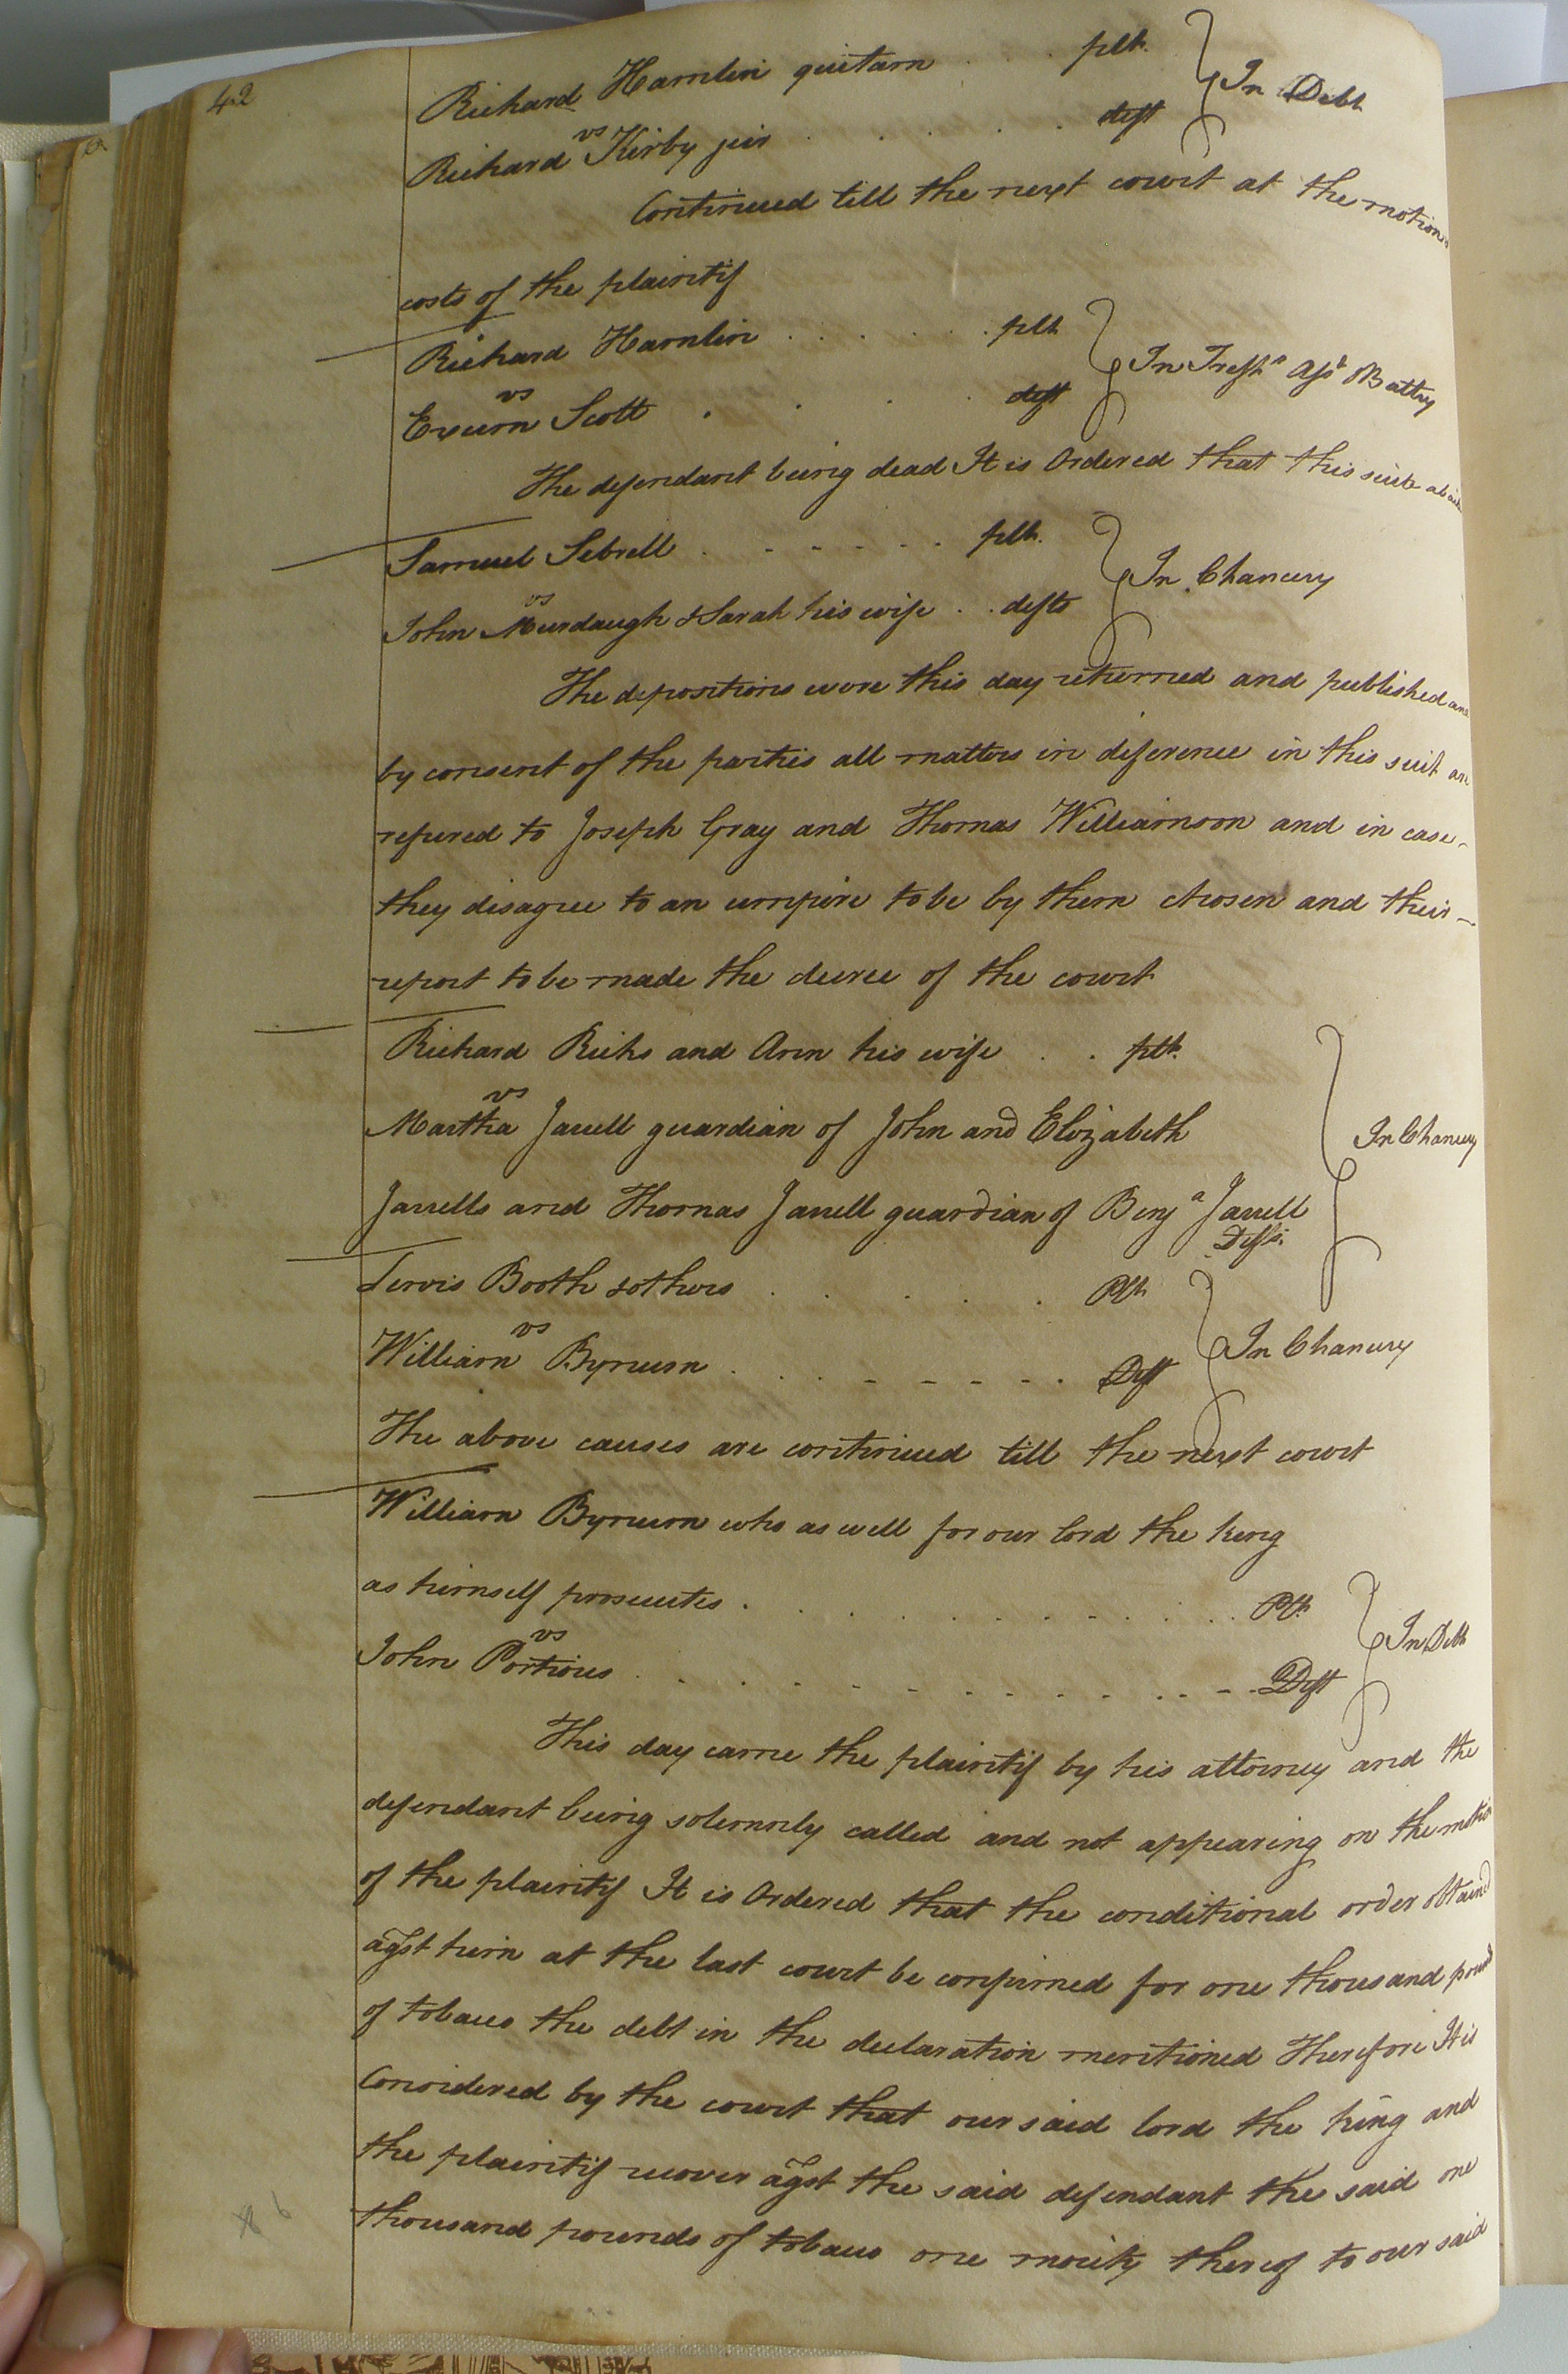 42
Richard Hamlin quitam . . . plt. In Debt
vs
Richard Kirby jur . . . . . deft
Continued till the next court at the motion
costs of the plaintif
Richard Hamlin . . . . . plt In Tresps Asst & Battry
vs
Exum Scott . . . . deft
The defendant being dead It is Ordered that this suit abate
Samuel Sebrell . . . . . . plt. In Chancery
vs
John Murdaugh & Sarah his wife . . defts
The depositions were this day returned and published and
by consent of the parties all matters in diference in this suit are
refered to Joseph Gray and Thomas Williamson and in case
they disagree to an umpire to be by them chosen and their
report to be made the decree of the court
Richard Ricks and Ann his wife . . plt. In Chancery
vs
Martha Jarrell guardian of John and Elizabeth
Jarrells and Thomas Jarrell guardian of Benja Jarrell
Defts.
Booth & others . . . . . Plt In Chancery
vs
William Bynum . . . . . . . . Deft
The above causes are continued till the next court
William Bynum who as well for our lord the king
as himself prosecutes . . . . . . . . . . Plt. In Debt
vs
John Portious . . . . . . . . . . . . Deft
This day came the plaintif by his attorney and the
defendant being solemnly called and not appearing on the motion
of the plaintif It is Ordered that the conditional order obtained
agst him at the last court be confirmed for one thousand pounds
of tobacco the debt in the declaration mentioned Therefore It is
Considered by the court that our said lord the king and
the plaintif recover agst the said defendant the said one
thousand pounds of tobacco one moiety thereof to our said